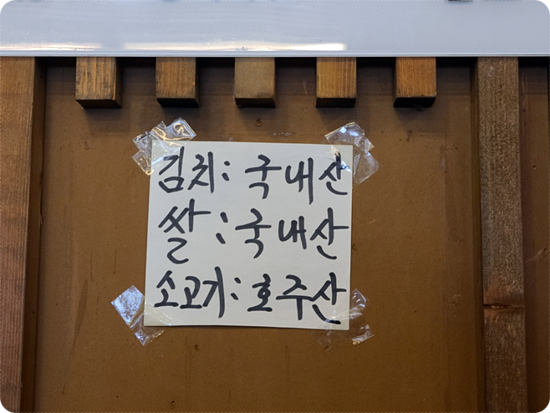 김치: 국내산
쌀: 국내산
소고기: 호주산